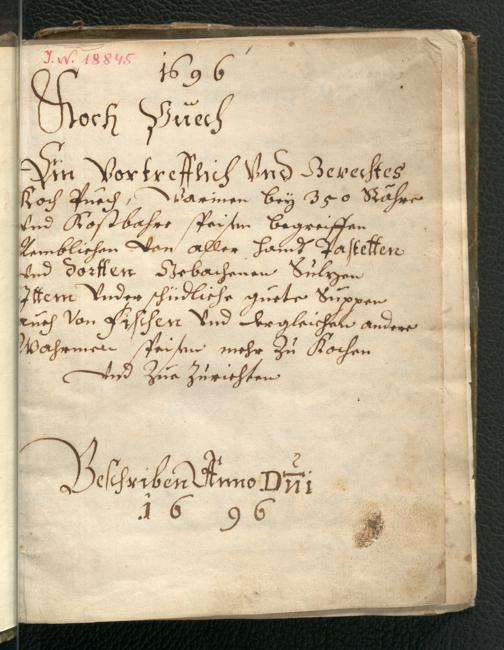 I. N. 18845
1696
Koch Puech
Ein Vortrefflich Vnd Gerechtes
Koch Puech, Warinen beÿ 350 Rahre
vnd Kostbahre speisen begreiffen
Nemblichen von aller hand Pastetten
vnd dortten Gebachenen Sulzen
Ittem Vnderschidliche guete Suppen
auch Von Fischen Vnd dergleichen andere
Wahrmen speisen mehr Zu Kochen
vnd Zue Zurichten
Beschriben Anno Dni
1696